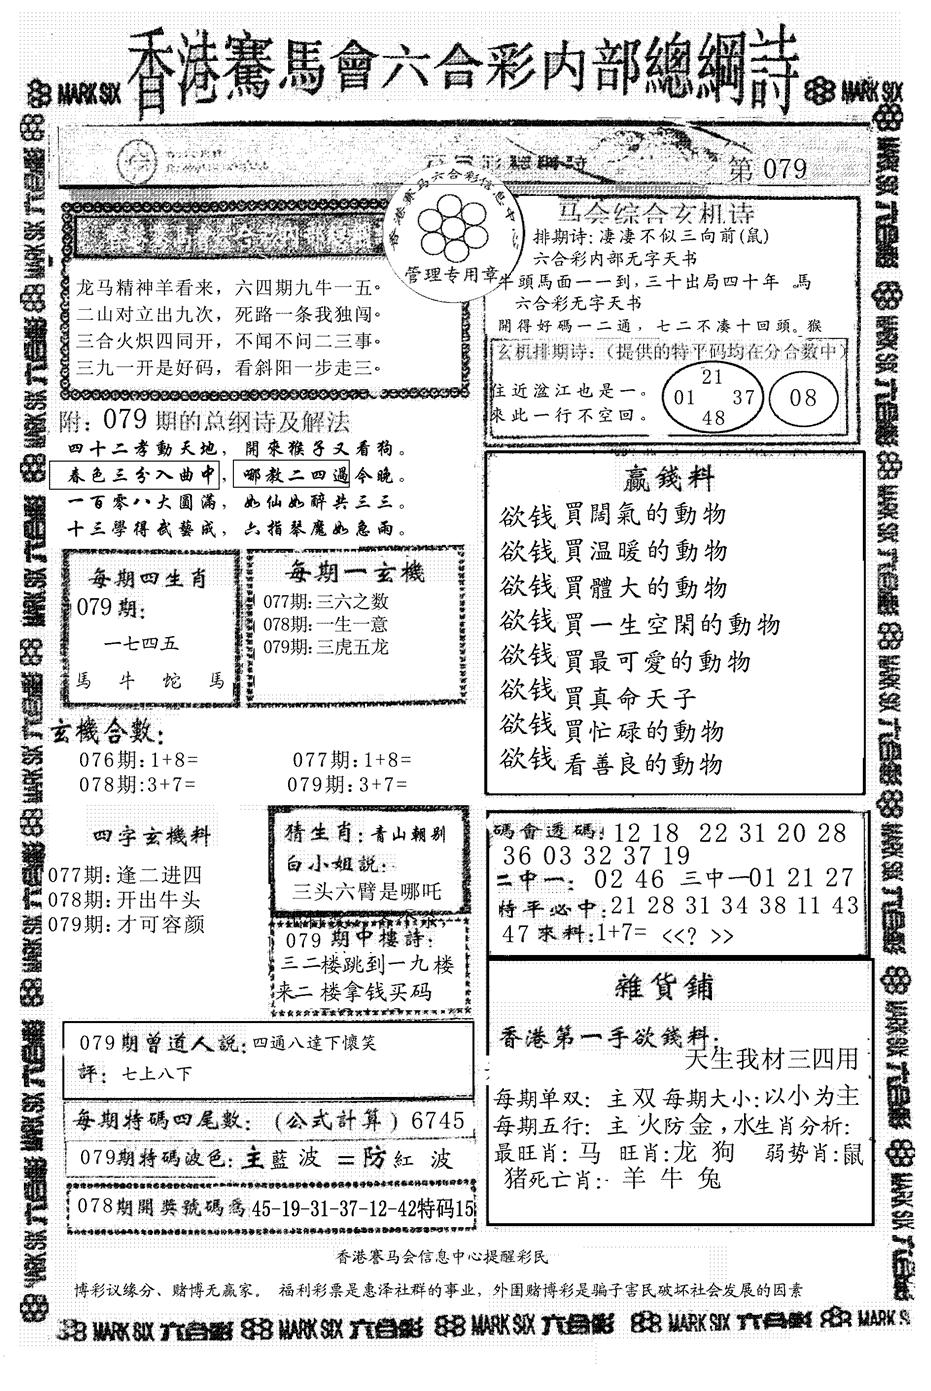 香港賽馬會六合彩内部總綱詩
MARK SIX
MARK SIX
第 079
香港赛马六合彩信息中心
管理专用章
龙马精神羊看来，六四期九牛一五。
二山对立出九次，死路一条我独闯。
三合火炽四同开，不闻不问二三事。
三九一开是好码，看斜阳一步走三。
马会综合玄机诗
排期诗: 凄凄不似三向前(鼠)
六合彩内部无字天书
牛頭馬面一一到, 三十出局四十年 。馬
六合彩无字天书
開得好碼一二通，七二不凑十回頭。猴
玄机排期诗:（提供的特平码均在分合数中）
住近湓江也是一。
來此一行不空回。
21
01 37
48
08
附: 079 期的总纲诗及解法
四十二孝動天地，開來猴子又看狗。
春色三分入曲中，哪教二四過今晚。
一百零八大圓滿，如仙如醉共三三。
十三學得武藝成，六指琴魔如急雨。
每期四生肖
079期:
一七四五
馬 牛 蛇 馬
每期一玄機
077期: 三六之数
078期: 一生一意
079期: 三虎五龙
贏錢料
欲钱買闊氣的動物
欲钱買温暖的動物
欲钱買體大的動物
欲钱買一生空閑的動物
欲钱買最可愛的動物
欲钱買真命天子
欲钱買忙碌的動物
欲钱看善良的動物
玄機合數:
076期: 1+8= 077期: 1+8=
078期: 3+7= 079期: 3+7=
四字玄機料
077期: 逢二进四
078期: 开出牛头
079期: 才可容颜
猜生肖: 青山朝别
白小姐説:
三头六臂是哪吒
079 期中樓詩:
三二楼跳到一九楼
来二楼拿钱买码
碼會透碼: 12 18 22 31 20 28
36 03 32 37 19
二中一: 02 46 三中一01 21 27
特平必中: 21 28 31 34 38 11 43
47 來料: 1+7= <<? >>
079期曾道人説: 四通八達下懷笑
評: 七上八下
每期特碼四尾數: (公式計算) 6745
079期特碼波色: 主藍波 =防紅波
078期開獎號碼爲 45-19-31-37-12-42特码15
雜貨鋪
香港第一手欲錢料:
天生我材三四用
每期单双: 主 双 每期大小: 以小为主
每期五行: 主 火防金，水生肖分析:
最旺肖: 马 旺肖: 龙 狗 弱势肖: 鼠
猪死亡肖: 羊 牛 兔
香港赛马会信息中心提醒彩民
博彩议缘分、赌博无赢家。 福利彩票是惠泽社群的事业，外围赌博彩是骗子害民破坏社会发展的因素
MARK SIX 六合彩 MARK SIX 六合彩 MARK SIX 六合彩 MARK SIX 六合彩 MARK SIX